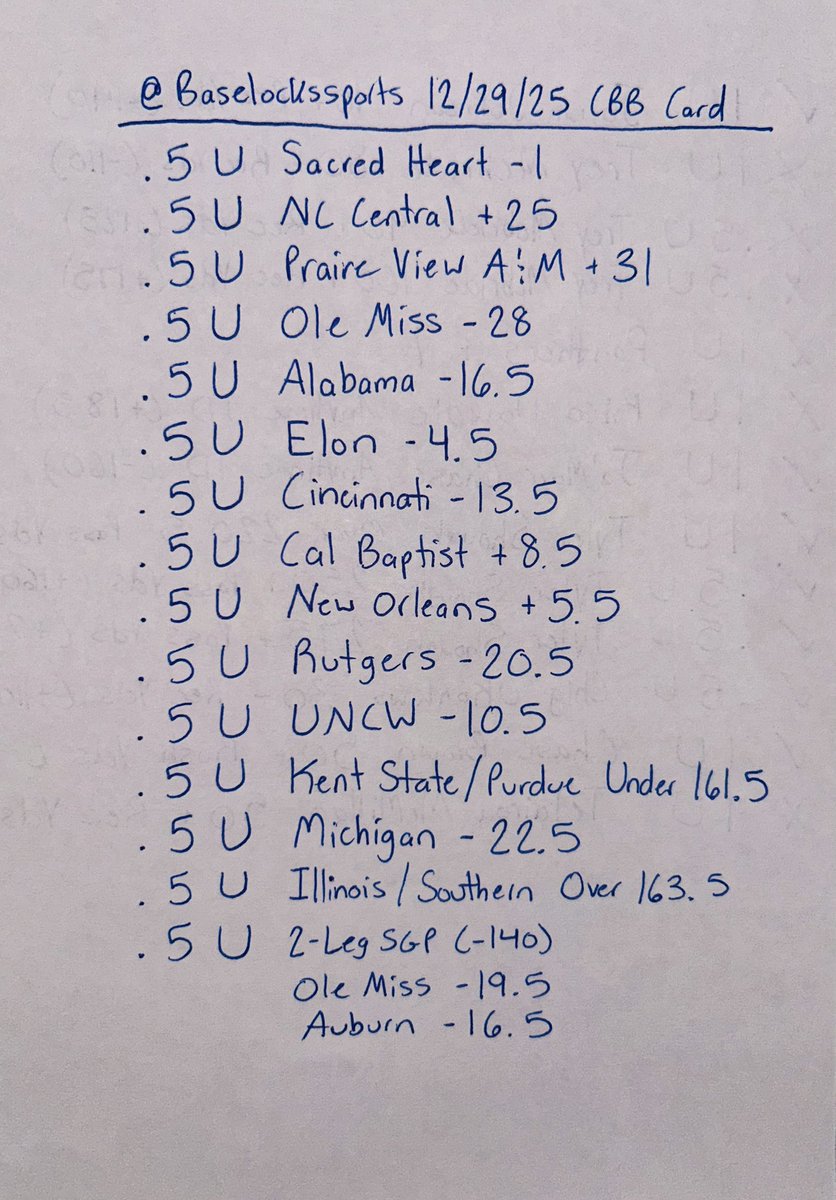 @Baselockssports 12/29/25 CBB Card
.5 U Sacred Heart -1
.5 U NC Central +25
.5 U Praire View A&M +31
.5 U Ole Miss -28
.5 U Alabama -16.5
.5 U Elon -4.5
.5 U Cincinnati -13.5
.5 U Cal Baptist +8.5
.5 U New Orleans +5.5
.5 U Rutgers -20.5
.5 U UNCW -10.5
.5 U Kent State/Purdue Under 161.5
.5 U Michigan -22.5
.5 U Illinois/Southern Over 163.5
.5 U 2-Leg SGP (-140)
Ole Miss -19.5
Auburn -16.5